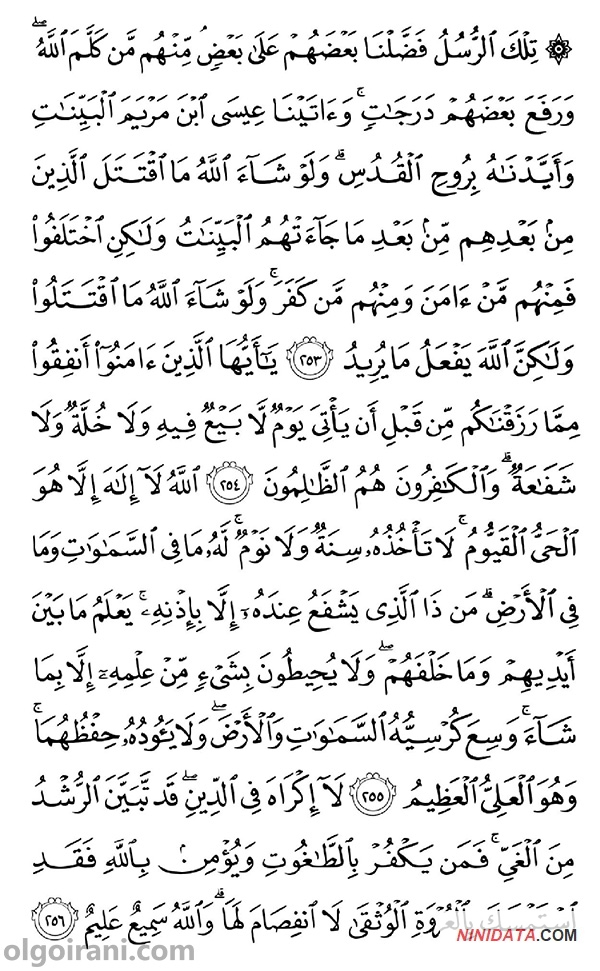 ۞ تِلۡكَ ٱلرُّسُلُ فَضَّلۡنَا بَعۡضَهُمۡ عَلَىٰ بَعۡضٖۘ مِّنۡهُم مَّن كَلَّمَ ٱللَّهُۖ
وَرَفَعَ بَعۡضَهُمۡ دَرَجَٰتٖۚ وَءَاتَيۡنَا عِيسَى ٱبۡنَ مَرۡيَمَ ٱلۡبَيِّنَٰتِ
وَأَيَّدۡنَٰهُ بِرُوحِ ٱلۡقُدُسِۗ وَلَوۡ شَآءَ ٱللَّهُ مَا ٱقۡتَتَلَ ٱلَّذِينَ
مِنۢ بَعۡدِهِم مِّنۢ بَعۡدِ مَا جَآءَتۡهُمُ ٱلۡبَيِّنَٰتُ وَلَٰكِنِ ٱخۡتَلَفُواْ
فَمِنۡهُم مَّنۡ ءَامَنَ وَمِنۡهُم مَّن كَفَرَۚ وَلَوۡ شَآءَ ٱللَّهُ مَا ٱقۡتَتَلُواْ
وَلَٰكِنَّ ٱللَّهَ يَفۡعَلُ مَا يُرِيدُ ٢٥٣ يَٰٓأَيُّهَا ٱلَّذِينَ ءَامَنُوٓاْ أَنفِقُواْ
مِمَّا رَزَقۡنَٰكُم مِّن قَبۡلِ أَن يَأۡتِيَ يَوۡمٞ لَّا بَيۡعٞ فِيهِ وَلَا خُلَّةٞ وَلَا
شَفَٰعَةٞۗ وَٱلۡكَٰفِرُونَ هُمُ ٱلظَّٰلِمُونَ ٢٥٤ ٱللَّهُ لَآ إِلَٰهَ إِلَّا هُوَ
ٱلۡحَيُّ ٱلۡقَيُّومُۚ لَا تَأۡخُذُهُۥ سِنَةٞ وَلَا نَوۡمٞۚ لَّهُۥ مَا فِي ٱلسَّمَٰوَٰتِ وَمَا
فِي ٱلۡأَرۡضِۗ مَن ذَا ٱلَّذِي يَشۡفَعُ عِندَهُۥٓ إِلَّا بِإِذۡنِهِۦۚ يَعۡلَمُ مَا بَيۡنَ
أَيۡدِيهِمۡ وَمَا خَلۡفَهُمۡۖ وَلَا يُحِيطُونَ بِشَيۡءٖ مِّنۡ عِلۡمِهِۦٓ إِلَّا بِمَا
شَآءَۚ وَسِعَ كُرۡسِيُّهُ ٱلسَّمَٰوَٰتِ وَٱلۡأَرۡضَۖ وَلَا يَـُٔودُهُۥ حِفۡظُهُمَاۚ
وَهُوَ ٱلۡعَلِيُّ ٱلۡعَظِيمُ ٢٥٥ لَآ إِكۡرَاهَ فِي ٱلدِّينِۖ قَد تَّبَيَّنَ ٱلرُّشۡدُ
مِنَ ٱلۡغَيِّۚ فَمَن يَكۡفُرۡ بِٱلطَّٰغُوتِ وَيُؤۡمِنۢ بِٱللَّهِ فَقَدِ
ٱسۡتَمۡسَكَ بِٱلۡعُرۡوَةِ ٱلۡوُثۡقَىٰ لَا ٱنفِصَامَ لَهَاۗ وَٱللَّهُ سَمِيعٌ عَلِيمٌ ٢٥٦
NINIDATA.COM
olgoirani.com